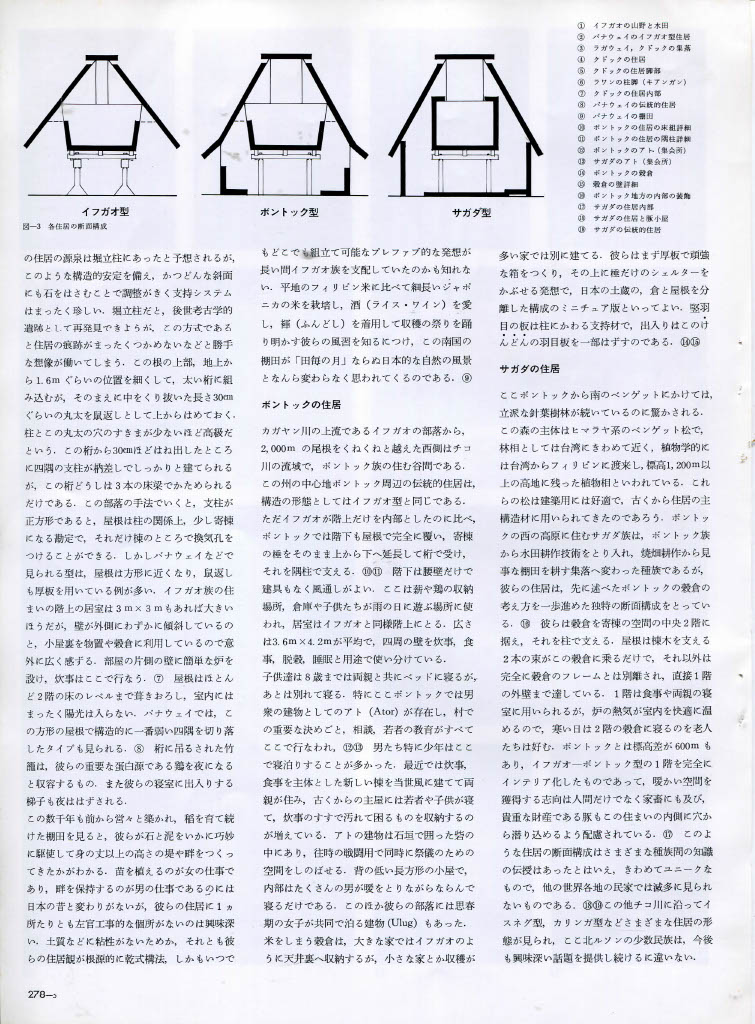 ① イフガオの山野と水田
② バナウェイのイフガオ型住居
③ ラガウェイ，クドックの集落
④ クドックの住居
⑤ クドックの住居脚部
⑥ ラワンの柱脚（キアンガン）
⑦ クドックの住居内部
⑧ バナウェイの伝統的住居
⑨ バナウェイの棚田
⑩ ボントックの住居の床組詳細
⑪ ボントックの住居の隅柱詳細
⑫ ボントックのアト（集会所）
⑬ サガダのアト（集会所）
⑭ ボントックの穀倉
⑮ 穀倉の壁詳細
⑯ ボントック地方の内部の装飾
⑰ サガダの住居内部
⑱ サガダの住居と豚小屋
⑲ サガダの伝統的住居
イフガオ型
ボントック型
サガダ型
図—3 各住居の断面構成
の住居の源泉は掘立柱にあったと予想されるが，
このような構造的安定を備え，かつどんな斜面
にも石をはさむことで調整がきく支持システム
はまったく珍しい．掘立柱だと，後世考古学的
遺跡として再発見できようが，この方式である
と住居の痕跡がまったくつかめないなどと勝手
な想像が働いてしまう．この根の上部，地上か
ら1.6mぐらいの位置を細くして，太い桁に組
み込むが，そのまえに中をくり抜いた長さ30cm
ぐらいの丸太を鼠返しとして上からはめておく．
柱とこの丸太の穴のすきまが少ないほど高級だ
という．この桁から30cmほどはね出したところ
に四隅の支柱が枘差しでしっかりと建てられる
が，この桁どうしは3本の床梁でかためられる
だけである．この部落の手法でいくと，支柱が
正方形であると，屋根は柱の関係上，少し寄棟
になる勘定で，それだけ棟のところで換気孔を
つけることができる．しかしバナウェイなどで
見られる型は，屋根は方形に近くなり，鼠返し
も厚板を用いている例が多い．イフガオ族の住
まいの階上の居室は3m×3mもあれば大きい
ほうだが，壁が外側にわずかに傾斜しているの
と，小屋裏を物置や穀倉に利用しているので意
外に広く感ずる．部屋の片側の壁に簡単な炉を
設け，炊事はここで行なう．⑦ 屋根はほとん
ど2階の床のレベルまで葺きおろし，室内には
まったく陽光は入らない．バナウェイでは，こ
の方形の屋根で構造的に一番弱い四隅を切り落
したタイプも見られる．⑧ 桁に吊るされた竹
籠は，彼らの重要な蛋白源である鶏を夜になる
と収容するもの．また彼らの寝室に出入りする
梯子も夜ははずされる．
この数千年も前から営々と築かれ，稲を育て続
けた棚田を見ると，彼らが石と泥をいかに巧妙
に駆使して身の丈以上の高さの堤や畔をつくっ
てきたかがわかる．苗を植えるのが女の仕事で
あり，畔を保持するのが男の仕事であるのには
日本の昔と変わりがないが，彼らの住居に1ヵ
所たりとも左官工事的な個所がないのは興味深
い．土質などに粘性がないためか，それとも彼
らの住居観が根源的に乾式構法，しかもいつで
もどこでも組立て可能なプレファブ的な発想が
長い間イフガオ族を支配していたのかも知れな
い．平地のフィリピン米に比べて細長いジャポ
ニカの米を栽培し，酒（ライス・ワイン）を愛
し，褌（ふんどし）を着用して収穫の祭りを踊
り明かす彼らの風習を知るにつけ，この南国の
棚田が「田毎の月」ならぬ日本的な自然の風景
となんら変わらなく思われてくるのである．⑨
ボントックの住居
カガヤン川の上流であるイフガオの部落から，
2,000mの尾根をくねくねと越えた西側はチコ
川の流域で，ボントック族の住む谷間である．
この州の中心地ボントック周辺の伝統的住居は，
構造の形態としてはイフガオ型と同じである．
ただイフガオが階上だけを内部としたのに比べ，
ボントックでは階下も屋根で完全に覆い，寄棟
の棰をそのまま上から下へ延長して桁で受け，
それを隅柱で支える．⑩⑪ 階下は腰壁だけで
建具もなく風通しがよい．ここは薪や鶏の収納
場所，倉庫や子供たちが雨の日に遊ぶ場所に使
われ，居室はイフガオと同様階上にとる．広さ
は3.6m×4.2mが平均で，四周の壁を炊事，食
事，脱穀，睡眠と用途で使い分けている．
子供達は8歳までは両親と共にベッドに寝るが，
あとは別れて寝る．特にここボントックでは男
衆の建物としてのアト（Ator）が存在し，村で
の重要な決めごと，相談，若者の教育がすべて
ここで行なわれ，⑫⑬ 男たち特に少年はここ
で寝泊りすることが多かった．最近では炊事，
食事を主体とした新しい棟を当世風に建てて両
親が住み，古くからの主屋には若者や子供が寝
て，炊事のすすで汚れて困るものを収納するの
が増えている．アトの建物は石垣で囲った砦の
中にあり，往時の戦闘用で同時に祭儀のための
空間をしのばせる．背の低い長方形の小屋で，
内部はたくさんの男が暖をとりながらならんで
寝るだけである．このほか彼らの部落には思春
期の女子が共同で泊る建物（Ulug）もあった．
米をしまう穀倉は，大きな家ではイフガオのよ
うに天井裏へ収納するが，小さな家とか収穫が
多い家では別に建てる．彼らはまず厚板で頑強
な箱をつくり，その上に棰だけのシェルターを
かぶせる発想で，日本の土蔵の，倉と屋根を分
離した構成のミニチュア版といってよい．竪羽
目の板は柱にかわる支持材で，出入りはこのけ
んどんの羽目板を一部はずすのである．⑭⑮
サガダの住居
ここボントックから南のベンゲットにかけては，
立派な針葉樹林が続いているのに驚かされる．
この森の主体はヒマラヤ系のベンゲット松で，
林相としては台湾にきわめて近く，植物学的に
は台湾からフィリピンに渡来し，標高1,200m以
上の高地に残った植物相といわれている．これ
らの松は建築用には好適で，古くから住居の主
構造材に用いられてきたのであろう．ボントッ
クの西の高原に住むサガダ族は，ボントック族
から水田耕作技術をとり入れ，焼畑耕作から見
事な棚田を耕す集落へ変わった種族であるが，
彼らの住居は，先に述べたボントックの穀倉の
考え方を一歩進めた独特の断面構成をとってい
る．⑯ 彼らは穀倉を寄棟の空間の中央2階に
据え，それを柱で支える．屋根は棟木を支える
2本の束がこの穀倉に乗るだけで，それ以外は
完全に穀倉のフレームとは別離され，直接1階
の外壁まで達している．1階は食事や両親の寝
室に用いられるが，炉の熱気が室内を快適に温
めるので，寒い日は2階の穀倉に寝るのを老人
たちは好む．ボントックとは標高差が600mも
あり，イフガオ—ボントック型の1階を完全に
インテリア化したものであって，暖かい空間を
獲得する志向は人間だけでなく家畜にも及び，
貴重な財産である豚もこの住まいの内側に穴か
ら潜り込めるよう配慮されている．⑰ このよ
うな住居の断面構成はさまざまな種族間の知識
の伝授はあったとはいえ，きわめてユニークな
もので，他の世界各地の民家では滅多に見られ
ないものである．⑱⑲この他チコ川に沿ってイ
スネグ型，カリンガ型などさまざまな住居の形
態が見られ，ここ北ルソンの少数民族は，今後
も興味深い話題を提供し続けるに違いない．
278—3